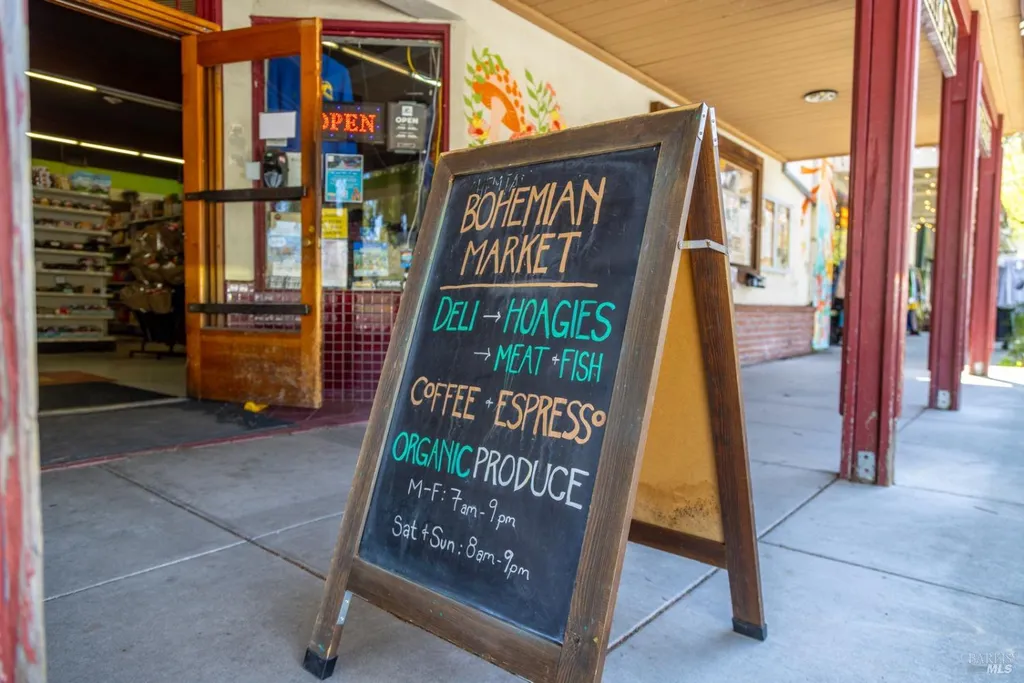 OPEN
OPEN
BOHEMIAN
MARKET
DELI → HOAGIES
→ MEAT + FISH
COFFEE + ESPRESSO
ORGANIC PRODUCE
M-F: 7am-9pm
Sat + Sun: 8am-9pm
BAREIS
MLS